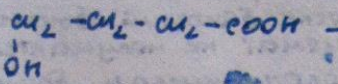 CH₂ - CH₂ - CH₂ - COOH -
OH